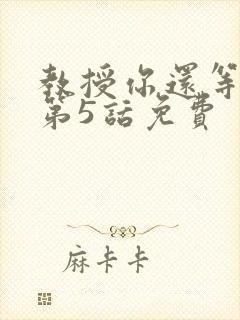 教授你還等
第5話免費
麻卡卡